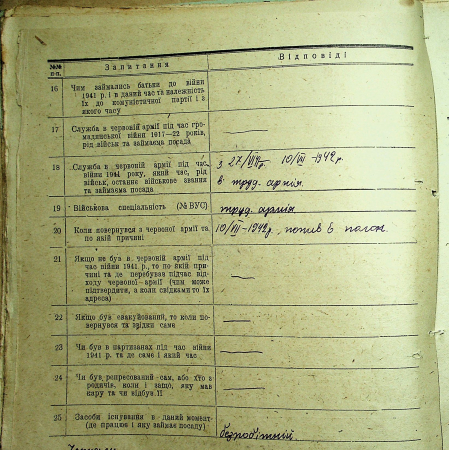 №№ п-п. Запитання Відповіді
16 Чим займались батьки до війни
1941 р. і в даний час та належність
їх до комуністичної партії і з
якого часу
17 Служба в червоній армії під час гро-
мадянської війни 1917—22 років,
рід військ та займаєма посада
18 Служба в червоній армії під час
війни 1941 року, який час, рід
військ, останнє військове звання
та займаєма посада
з 27/ 10/VII-1942 р.
в труд. армія.
19 Військова спеціальність (№ ВУС) труд. армія
20 Коли повернувся з червоної армії та
по якій причині
10/VII-1942 р., попав в полон.
21 Якщо не був в червоній армії під
час війни 1941 р., то по якій при-
чині та де перебував підчас від-
ходу червоної армії (чим може
підтвердити, з коли свідками то їх
адреса)
22 Якщо був евакуйований, то коли по-
вернувся та звідки саме
23 Чи був в партизанах під час війни
1941 р. та де саме і який час
24 Чи був репресований сам, або хто з
родичів, коли і защо, яку мав
кару та чи відбув її
25 Засоби існування в даний момент
(де працює і яку займає посаду)
безробітній.